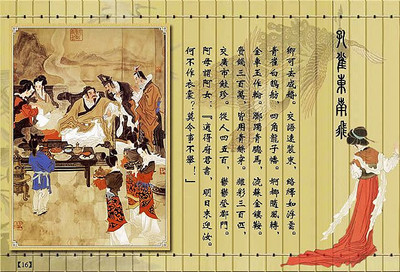 孔雀東南飛
卿可去成婚。交語速裝束,絡繹如浮雲。
青雀白鵠舫,四角龍子幡。婀娜隨風轉,
金車玉作輪。躑躅青驄馬,流蘇金鏤鞍。
齎錢三百萬,皆用青絲穿。雜彩三百匹,
交廣市鮭珍。從人四五百,鬱鬱登郡門。
阿母謂阿女:『適得府君書,明日來迎汝。
何不作衣裳?莫令事不舉!』
【16】